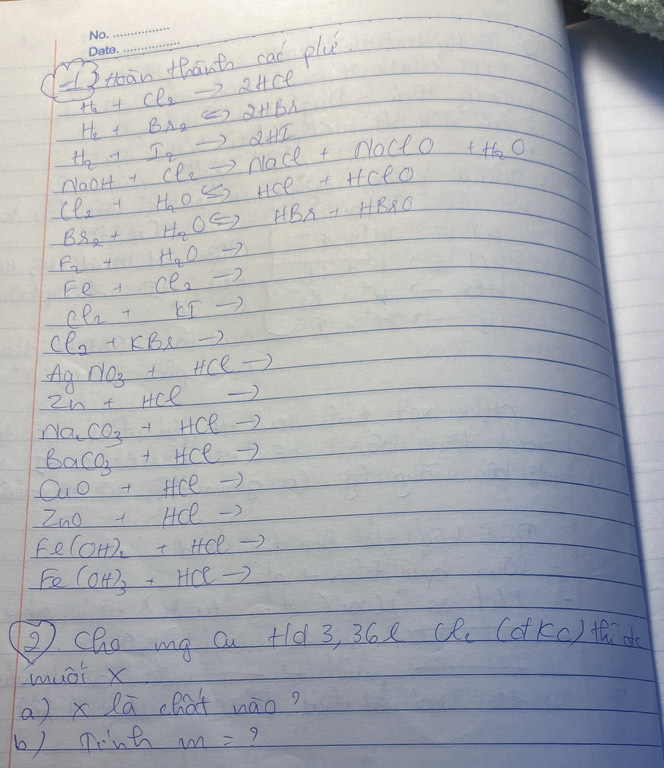 No. ..................
Date. ..................
1) Hoàn thành các pứ.
H₂ + Cl₂ → 2HCl
H₂ + Br₂ ⇔ 2HBr
H₂ + I₂ → 2HI
NaOH + Cl₂ → NaCl + NaClO + H₂O
Cl₂ + H₂O ⇔ HCl + HClO
Br₂ + H₂O ⇔ HBr + HBrO
F₂ + H₂O →
Fe + Cl₂ →
Cl₂ + KI →
Cl₂ + KBr →
AgNO₃ + HCl →
Zn + HCl →
Na₂CO₃ + HCl →
BaCO₃ + HCl →
CuO + HCl →
ZnO + HCl →
Fe(OH)₂ + HCl →.
Fe(OH)₃ + HCl →
2) Cho mg Cu td 3,36l Cl₂ (đkc) thì đc
muối X
a) X là chất nào?
b) Tính m = ?